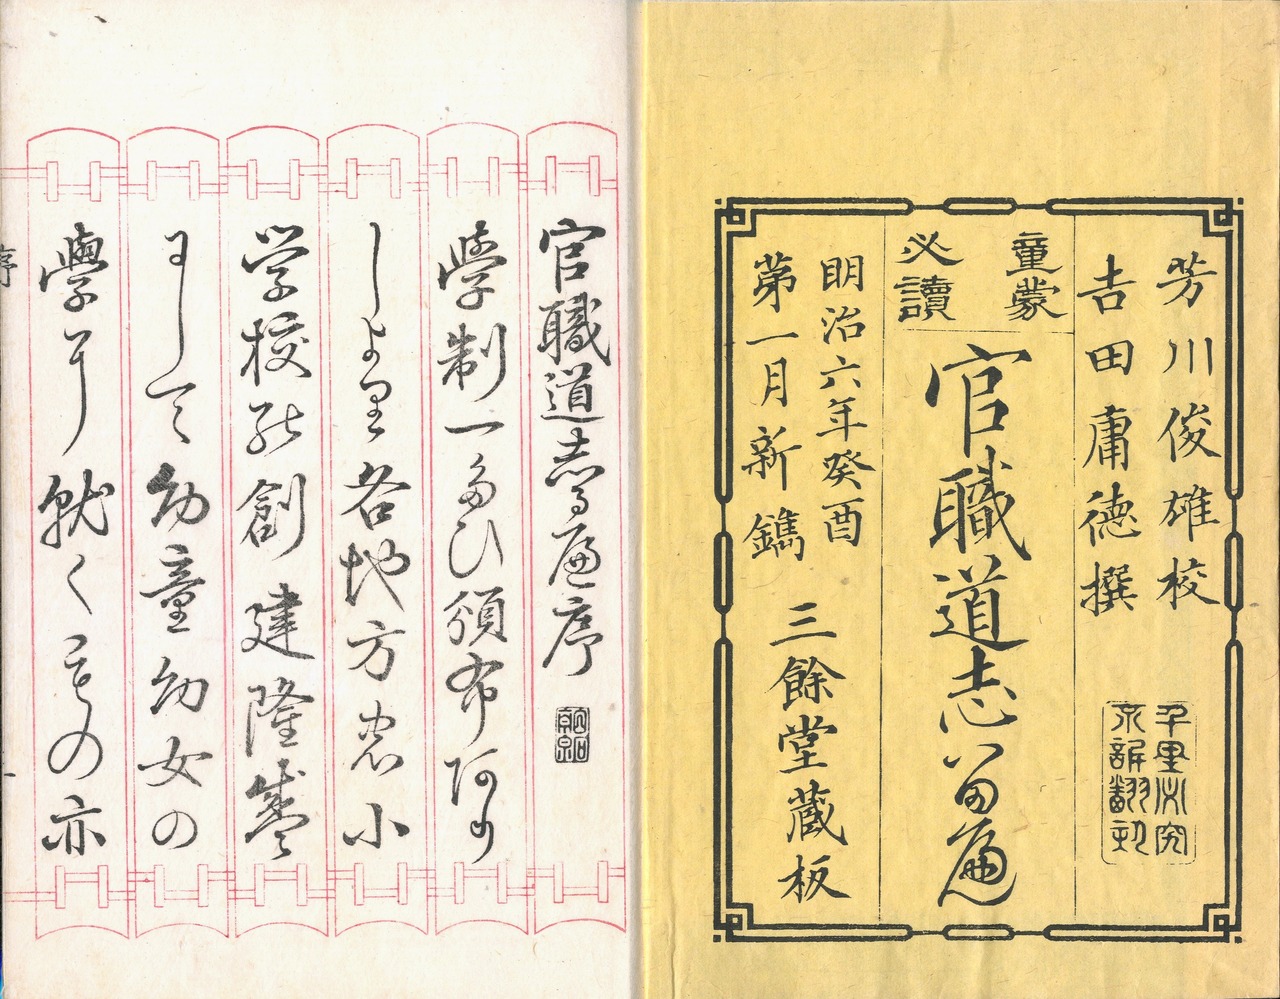 芳川俊雄校
吉田庸徳撰
千里必究
不許翻刻
童蒙
必讀
官職道志留遍
明治六年癸酉
第一月新鐫
三餘堂蔵板
官職道志る遍序
學制一多ひ頒布阿り
しより各地方忽小
学校能創建隆盛
尓して幼童幼女の
學耳就くもの亦
序